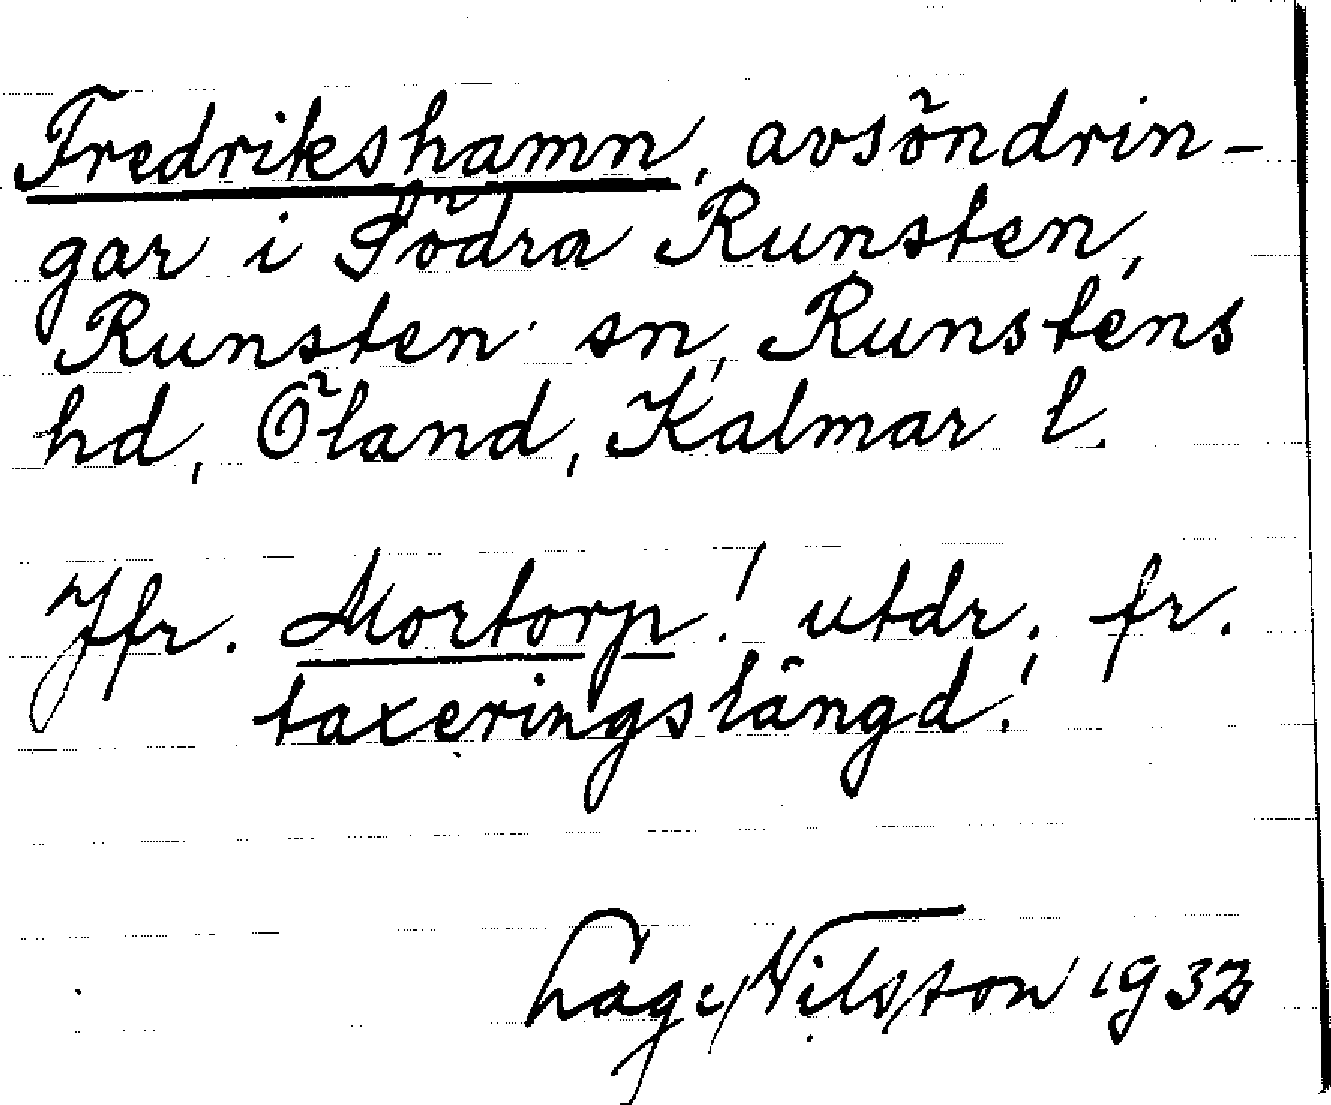 Fredrikshamn, avsöndrin-
gar i Södra Runsten,
Runsten sn, Runstens
hd, Öland, Kalmar l.
Jfr. Mortorp! utdr. fr.
taxeringslängd!
Nilsson 1932